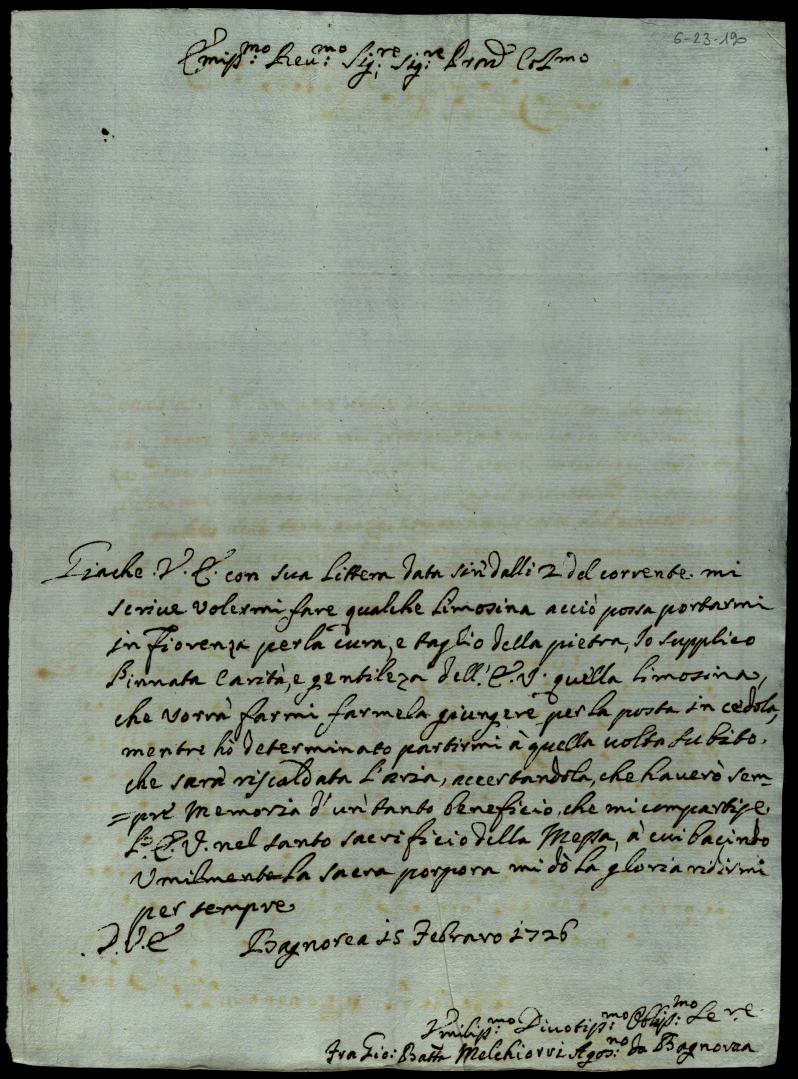 6-23-190
Emiss:mo Reu:mo Sig:re Sig:re Pron Col:mo
Giache V. E. con sua littera data sin dalli 2 del corrente mi
scriue volermi fare qualche limosina acciò possa portarmi
in fiorenza per la cura, e taglio della pietra, Io supplico
l'innata Carità, e gentileza dell' E. V. quella limosina,
che vorrà farmi farmela giungere per la posta in cedola,
mentre hò determinato partirmi à quella volta subito,
che sarà riscaldata l'aria, accertandola, che haverò sem-
=pre Memoria d'un tanto beneficio, che mi compartisse
l' E. V. nel santo sacrificio della Messa, à cui bacindo
Umilmente la sacra porpora mi dò la gloria ridirmi
per sempre
D. V. E Bagnorea 15 Febraro 1726
Vmiliss:mo Diuotiss:mo Obliss:mo Se re
Fra Gio: Batta Melchiorri Agos:no da Bagnorea